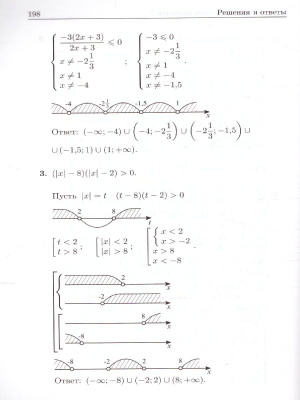 198 Решения и ответы
{ −3(2x + 3)/(2x + 3) ⩽ 0 ; { −3 ⩽ 0
x ≠ −2 1/3 x ≠ −2 1/3
x ≠ 1 x ≠ 1
x ≠ −4 x ≠ −4
x ≠ −1,5 .
-4 -2 1/3 -1,5 1 x
Ответ: (−∞; −4) ∪ (−4; −2 1/3) ∪ (−2 1/3; −1,5) ∪
∪ (−1,5; 1) ∪ (1; +∞).
3. (|x| − 8)(|x| − 2) > 0.
Пусть |x| = t (t − 8)(t − 2) > 0
2 8 t
[ t < 2 ; [ |x| < 2 ; [ { x < 2
t > 8 |x| > 8 x > −2
x > 8
x < −8 .
2 x
-2 x
8 x
-8 x
-8 -2 2 8 x
Ответ: (−∞; −8) ∪ (−2; 2) ∪ (8; +∞).